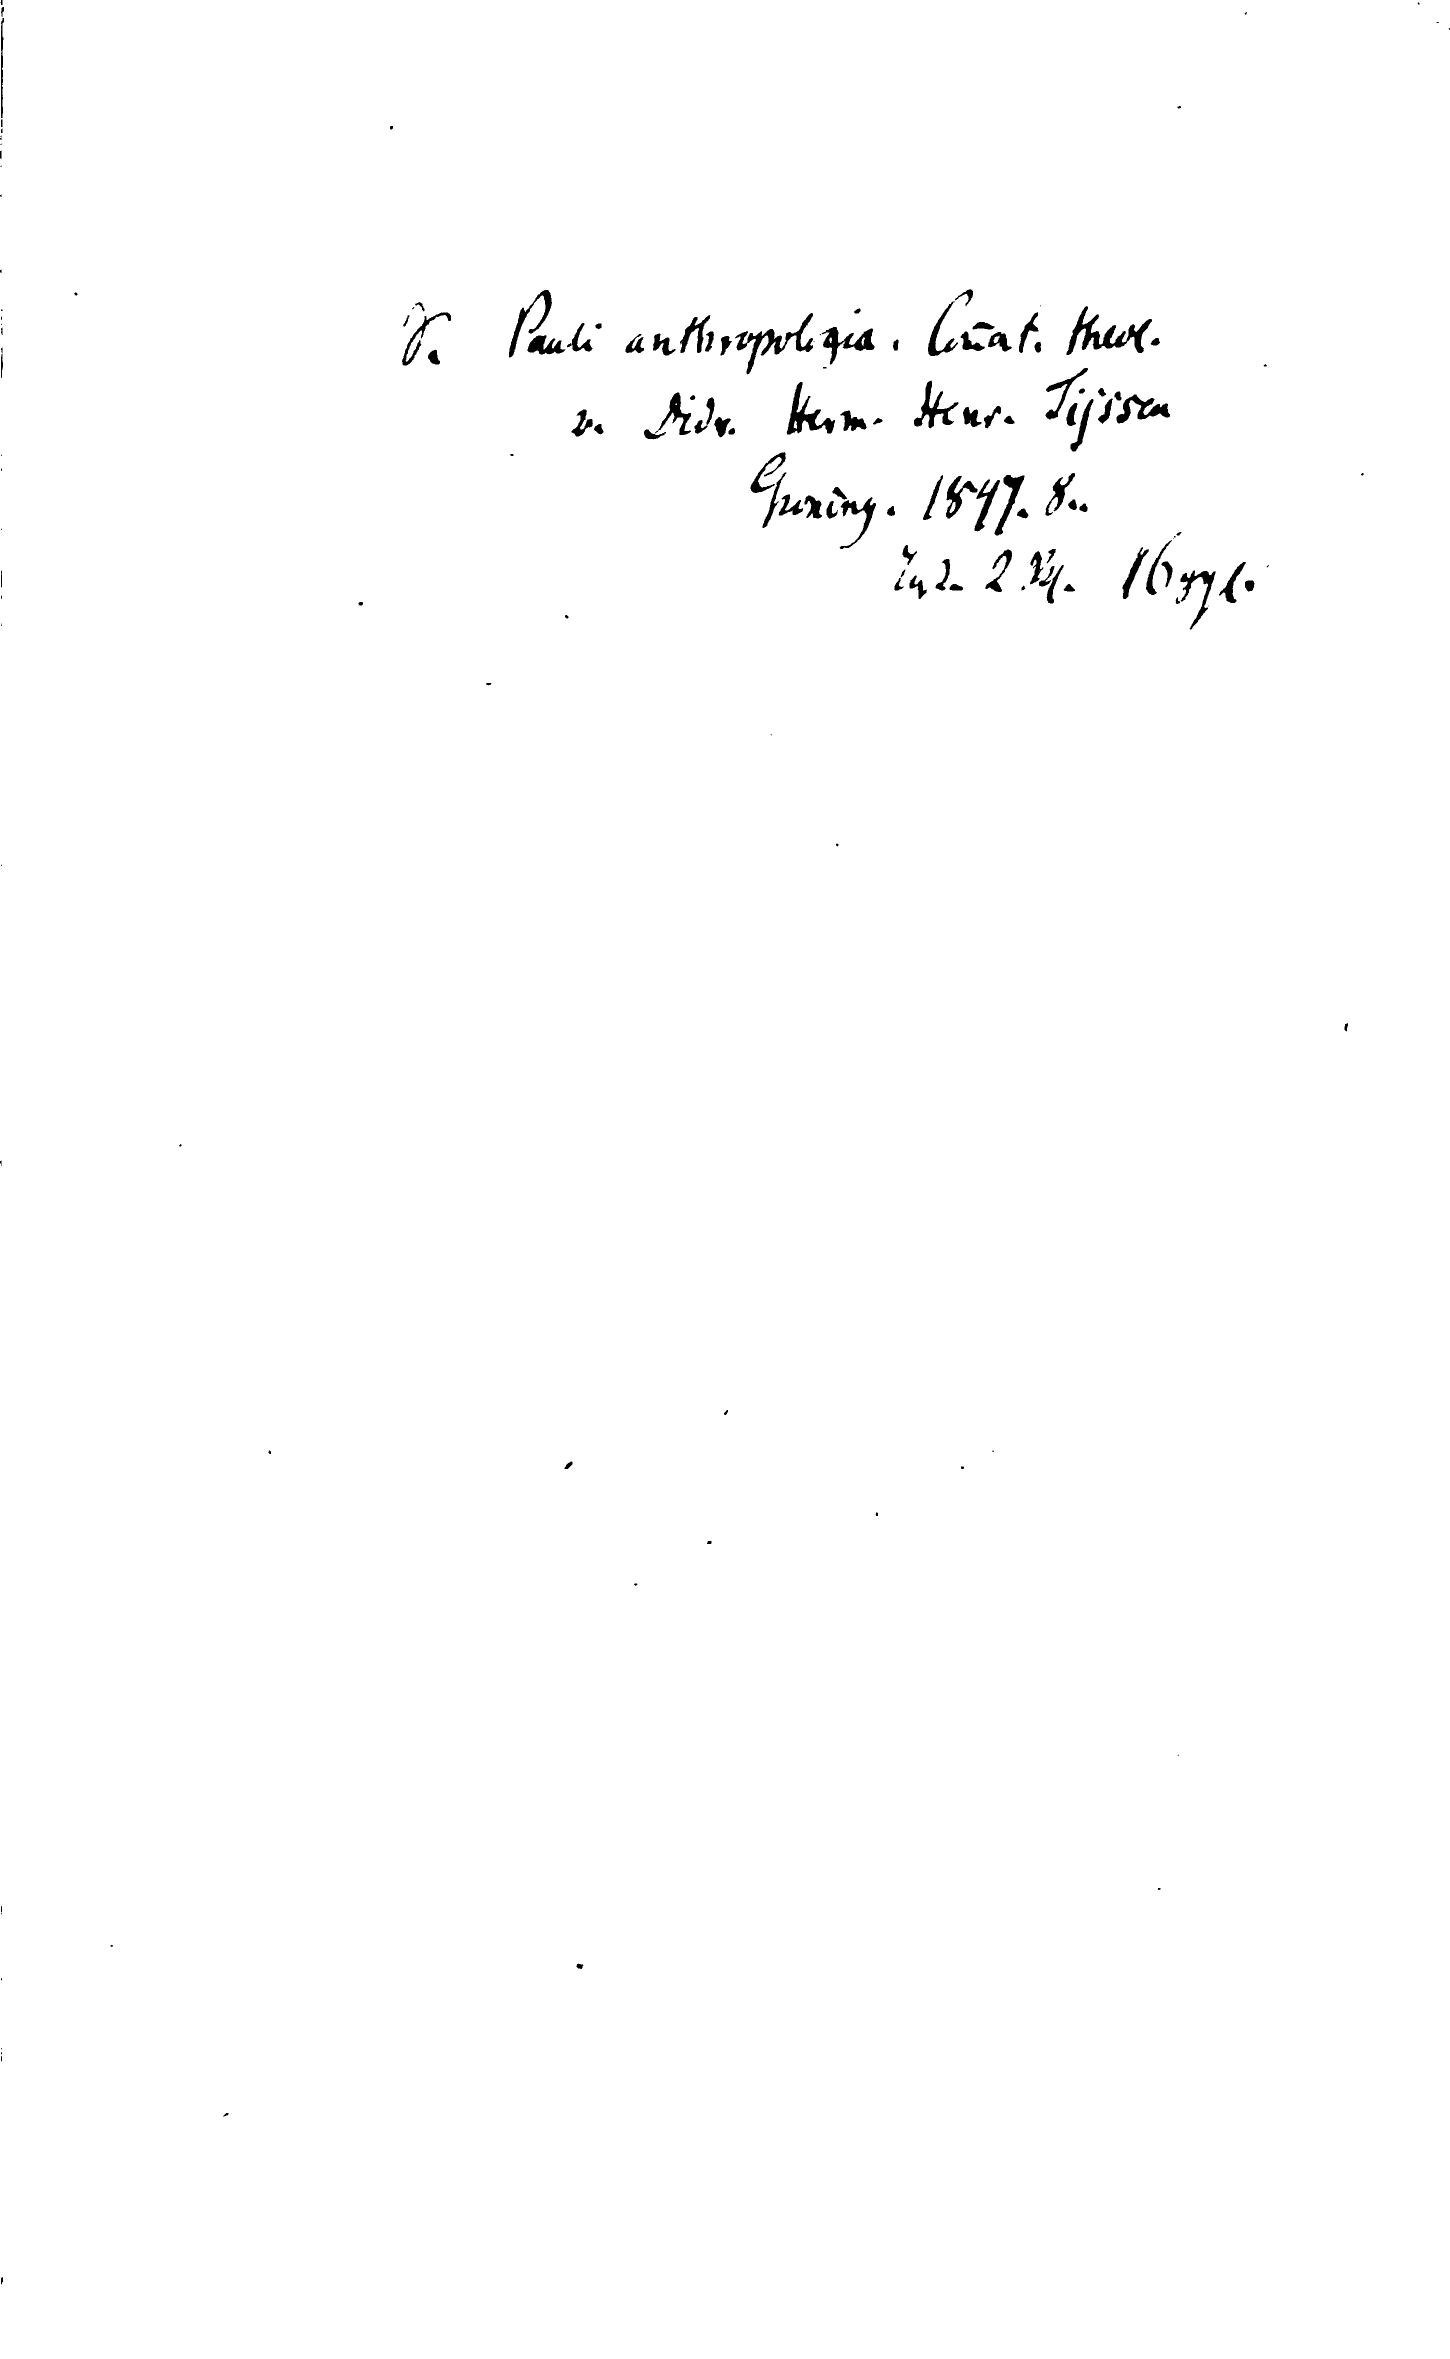 V. Pauli anthropologia. Com̄at. theol.
v. Didr. Herm. Henr. Tijssen
Groning. 1847. 8..
2 16